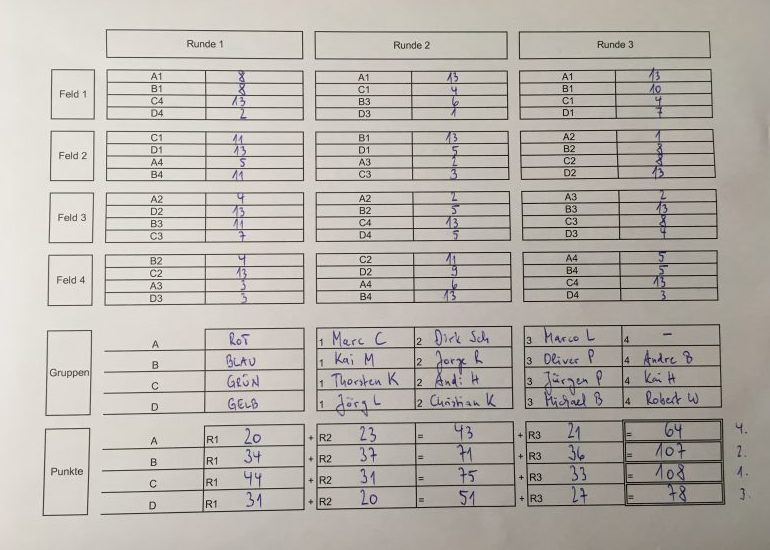 Runde 1 Runde 2 Runde 3
Feld 1
A1 8 A1 13 A1 13
B1 8 C1 4 B1 10
C4 13 B3 6 C1 4
D4 2 D3 1 D1 7
Feld 2
C1 11 B1 13 A2 1
D1 13 D1 5 B2 8
A4 5 A3 2 C2 8
B4 11 C3 3 D2 13
Feld 3
A2 4 A2 2 A3 2
D2 13 B2 5 B3 13
B3 11 C4 13 C3 8
C3 7 D4 5 D3 4
Feld 4
B2 4 C2 11 A4 5
C2 13 D2 9 B4 5
A3 3 A4 6 C4 13
D3 3 B4 13 D4 3
Gruppen
A ROT 1 Marc C 2 Dirk Sch 3 Marco L 4 -
B BLAU 1 Kai M 2 Jorge R 3 Oliver P 4 Andre B
C GRÜN 1 Thorsten K 2 Andi H 3 Jürgen P 4 Kai H
D GELB 1 Jörg L 2 Christian K 3 Michael B 4 Robert W
Punkte
A R1 20 + R2 23 = 43 + R3 21 = 64 4.
B R1 34 + R2 37 = 71 + R3 36 = 107 2.
C R1 44 + R2 31 = 75 + R3 33 = 108 1.
D R1 31 + R2 20 = 51 + R3 27 = 78 3.